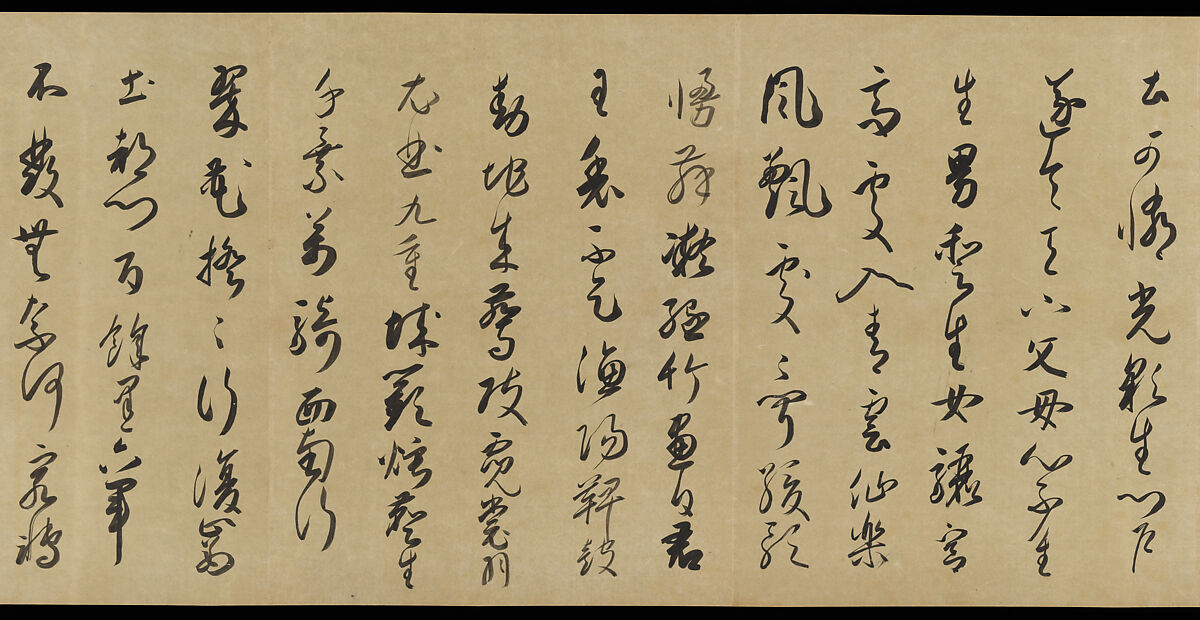 土可憐光彩生門戶
遂令天下父母心不重
生男重生女驪宮
高處入青雲仙樂
風飄處〻聞緩歌
慢舞凝絲竹盡日君
王看不足漁陽鞞鼓
動地來驚破霓裳羽
衣曲九重城闕煙塵生
千乘萬騎西南行
翠花搖〻行復止西
出都門百餘里六軍
不發無奈何宛轉